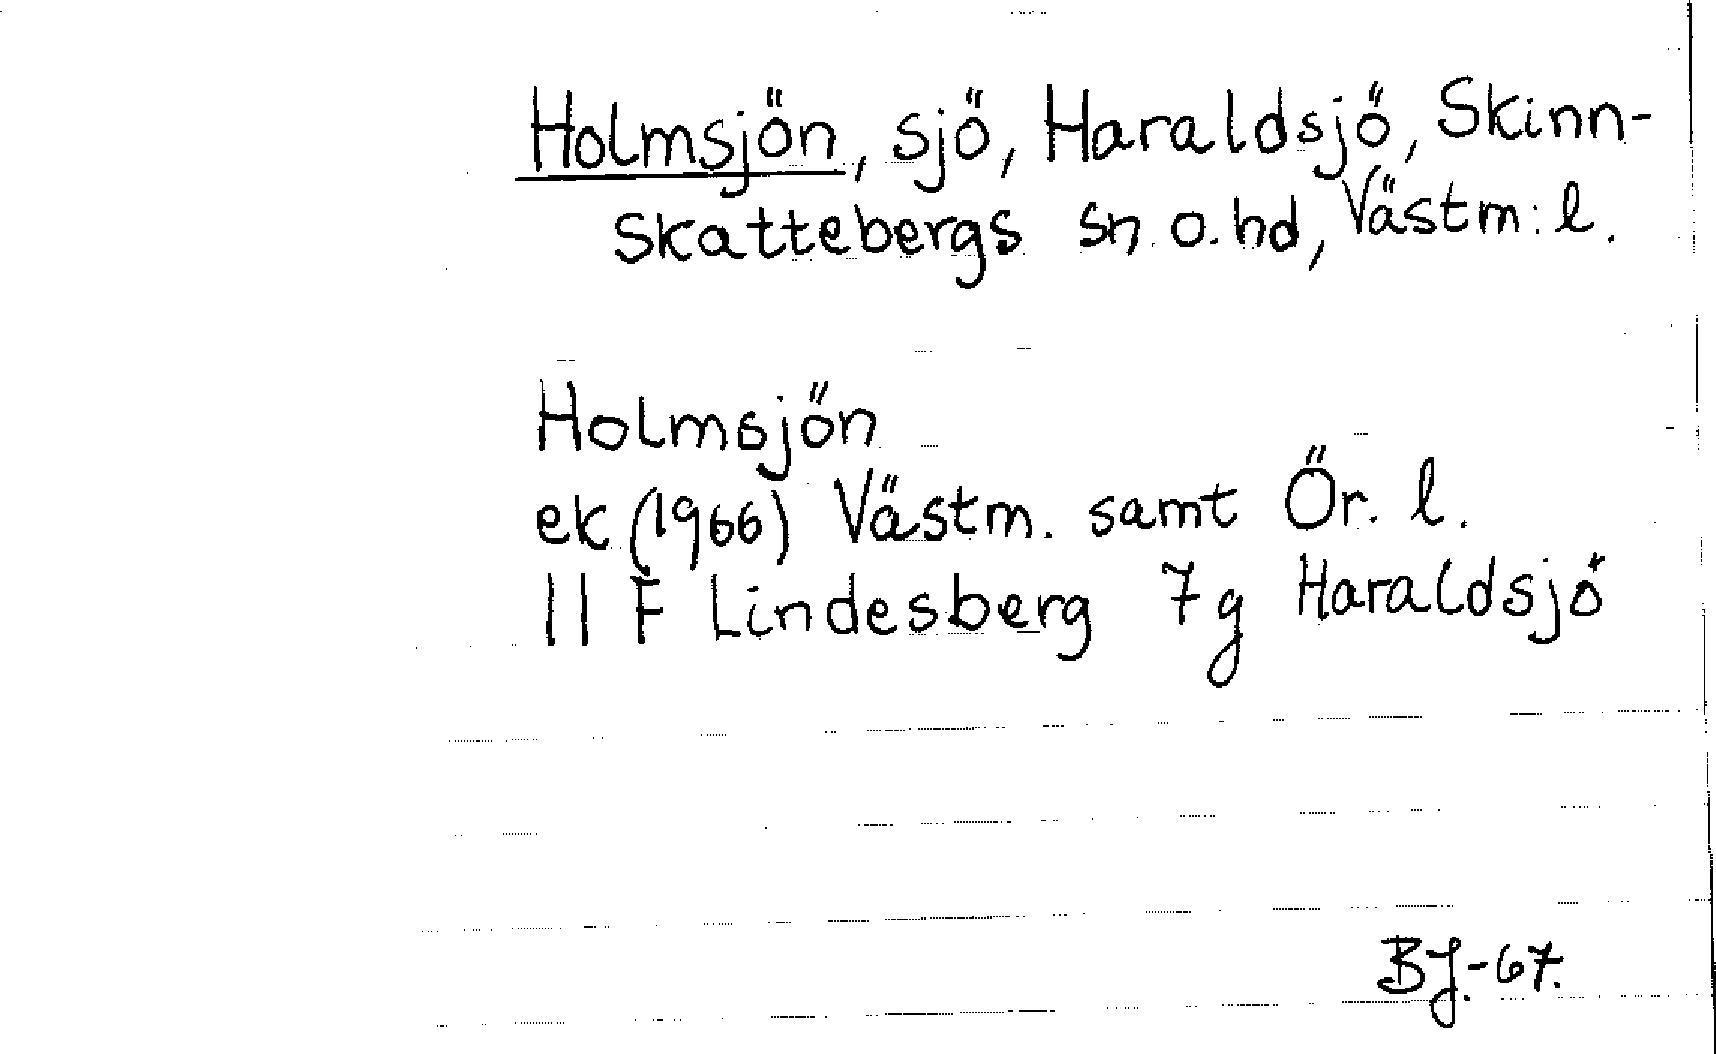 Holmsjön, sjö, Haraldsjö, Skinn-
skattebergs sn. o. hd, Västm: l.
Holmsjön
ek (1966) Västm. samt Ör. l.
11 F Lindesberg 7g Haraldsjö
BJ.-67.